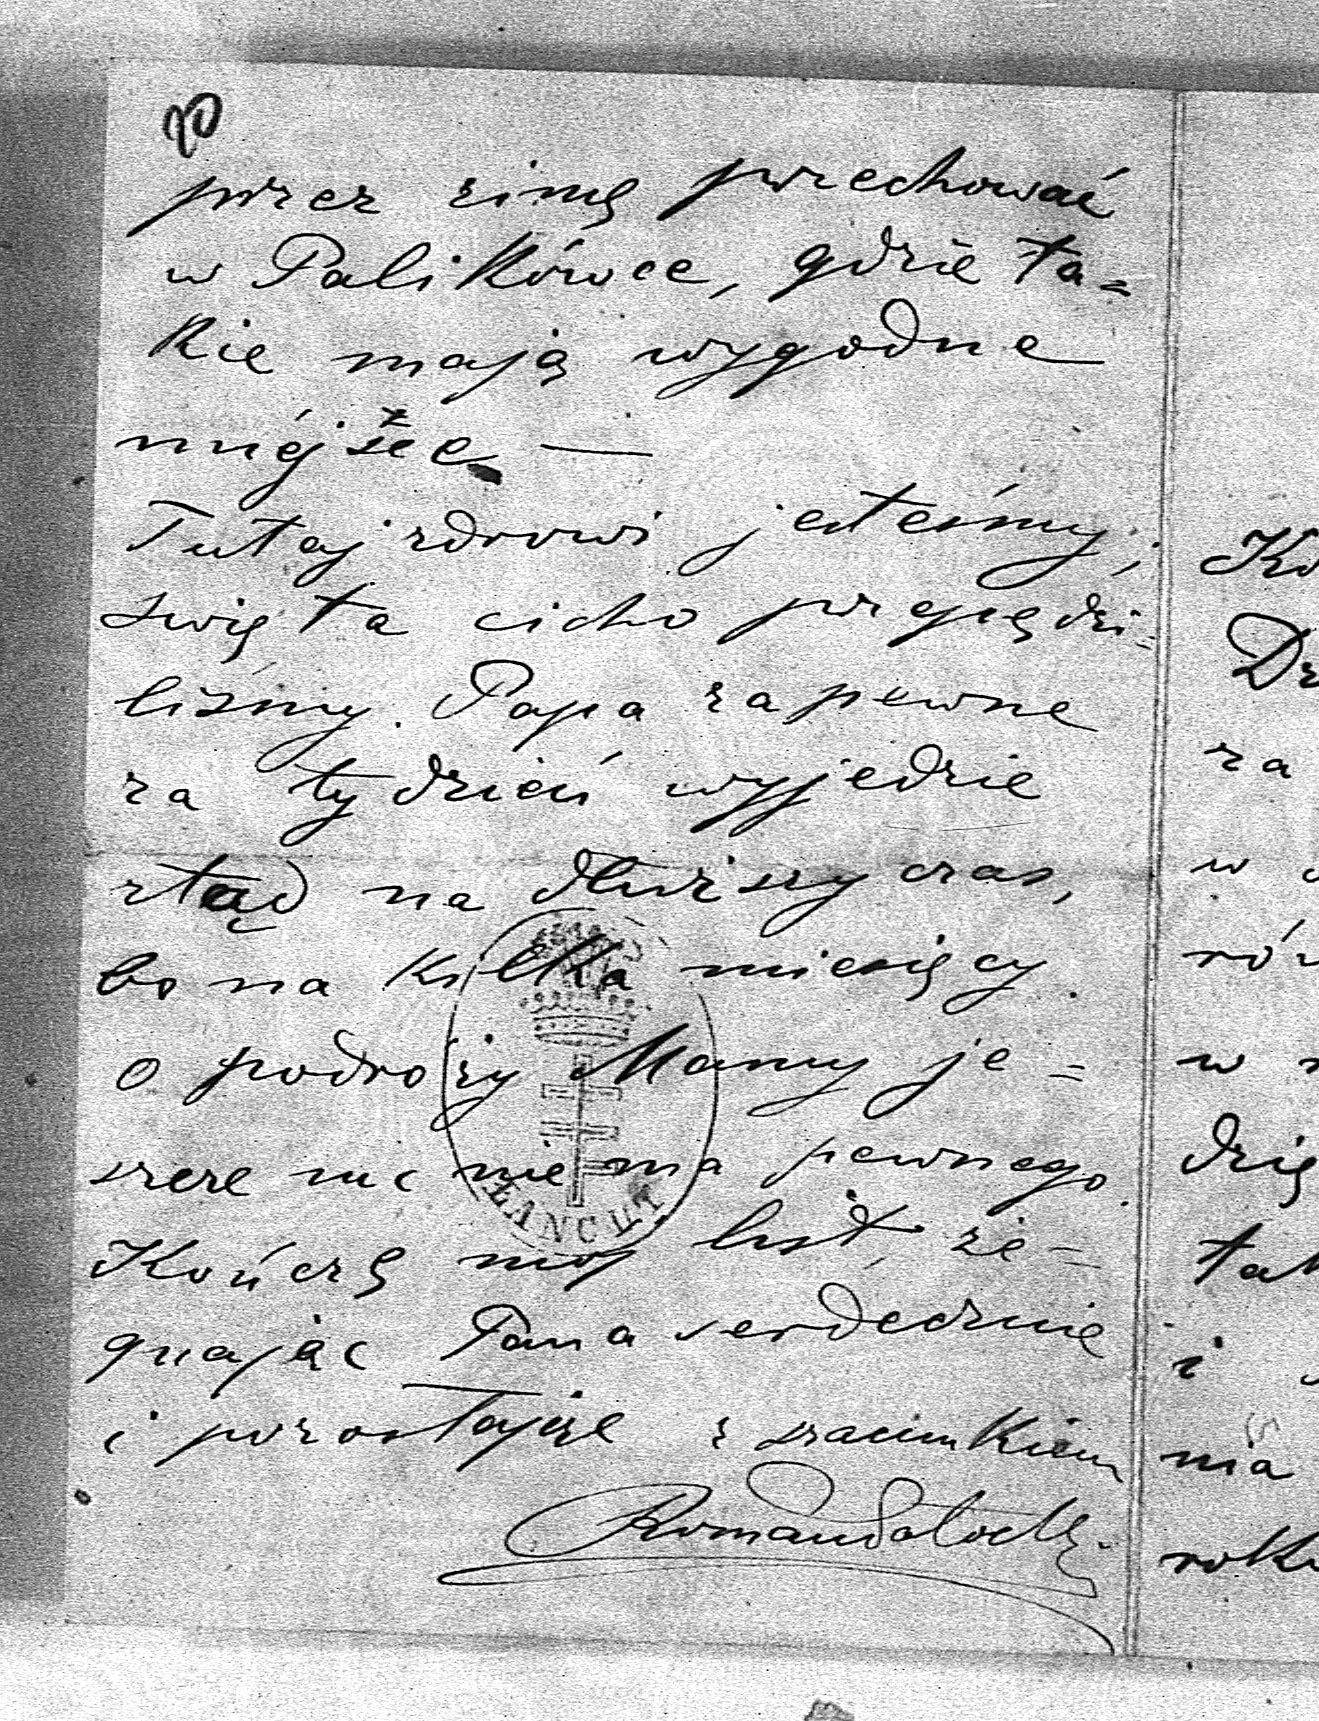 20
przez zimę przechować
w Palikówce, gdzie ta=
kie mają wygodne
miéjsce —
Tutaj zdrowi jesteśmy,
święta cicho przepędzi-
liśmy. Papa zapewne
za tydzień wyjedzie
ztąd na dłuższy czas,
bo na kilka miesięcy.
o podroży Mamy je=
szcze nic nie ma pewnego.
Kończę mój list, że=
gnając Pana serdecznie
i pozostaję z szacunkiem
Roman Potocki
ŁAŃCUT
Ko
Dz
za
w
rów
w
dzię
tak
i
nia
roku